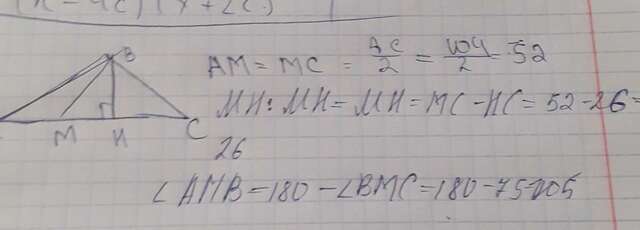 B
M H C
AM = MC = AC/2 = 104/2 = 52
MH: MH = MH = MC - HC = 52 - 26 =
26
∠AMB = 180 - ∠BMC = 180 - 75 = 105